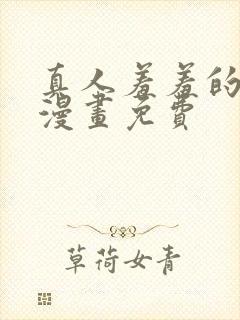 真人羞羞的
漫畫免費
草荷女青